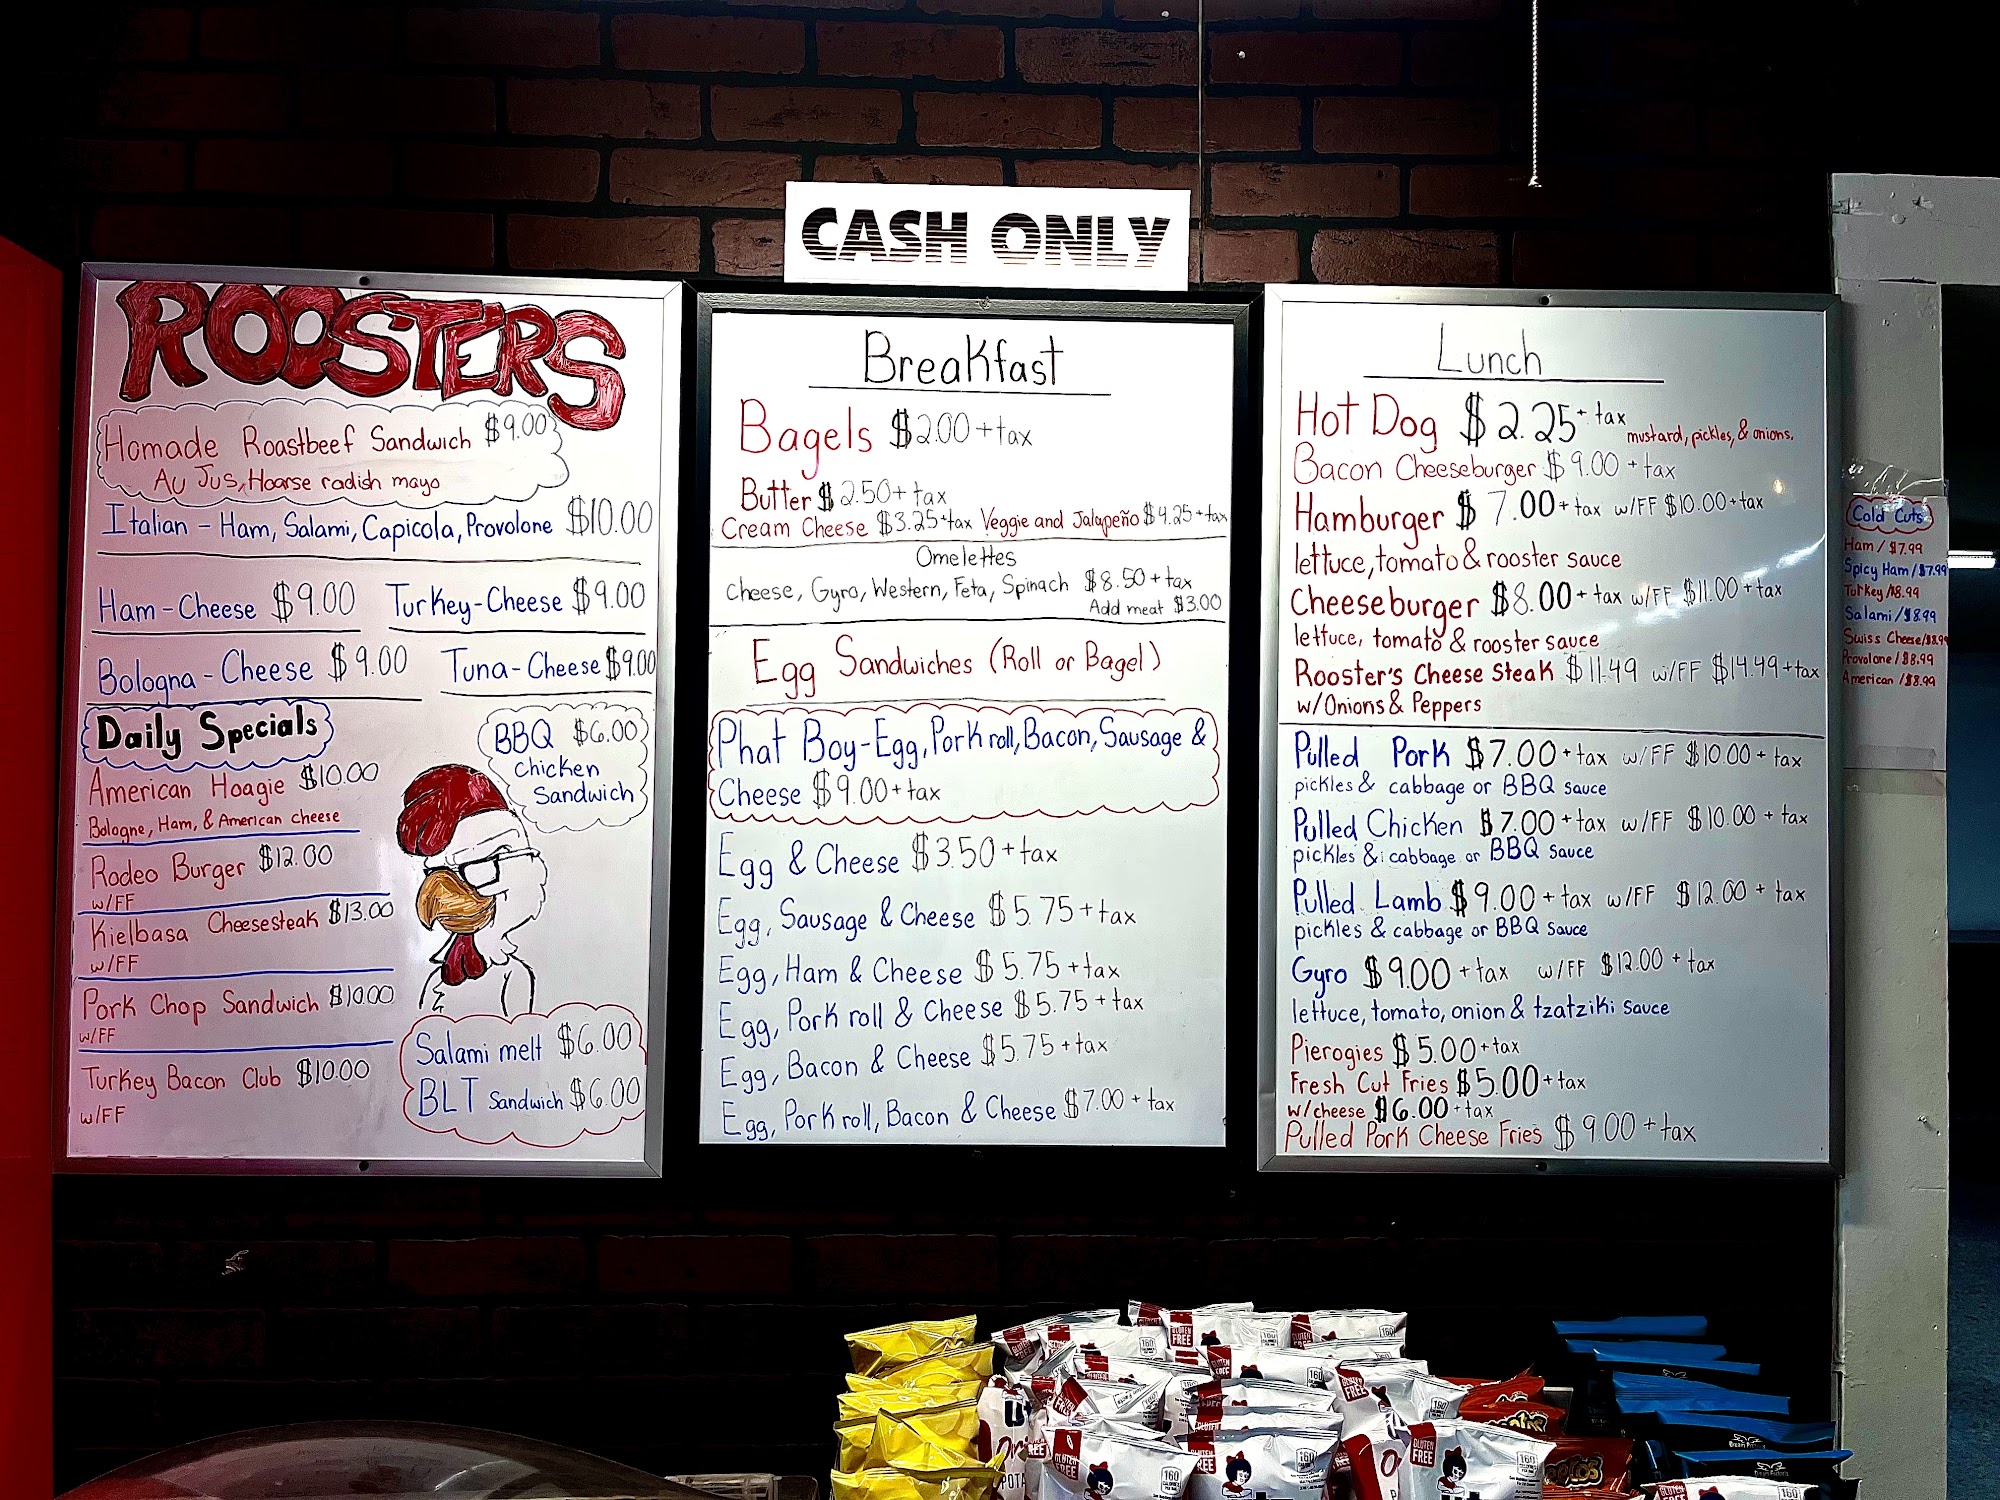 CASH ONLY
ROOSTERS
Homade Roastbeef Sandwich $9.00
Au Jus, Hoarse radish mayo
Italian - Ham, Salami, Capicola, Provolone $10.00
Ham-Cheese $9.00 Turkey-Cheese $9.00
Bologna-Cheese $9.00 Tuna-Cheese $9.00
Daily Specials
BBQ $6.00
Chicken
Sandwich
American Hoagie $10.00
Bologne, Ham, & American cheese
Rodeo Burger $12.00
w/FF
Kielbasa Cheesesteak $13.00
w/FF
Pork Chop Sandwich $10.00
w/FF
Turkey Bacon Club $10.00
w/FF
Salami melt $6.00
BLT Sandwich $6.00
Breakfast
Bagels $2.00 + tax
Butter $2.50 + tax
Cream Cheese $3.25 + tax Veggie and Jalapeño $4.25 + tax
Omelettes
Cheese, Gyro, Western, Feta, Spinach $8.50 + tax
Add meat $3.00
Egg Sandwiches (Roll or Bagel)
Phat Boy-Egg, Pork roll, Bacon, Sausage &
Cheese $9.00 + tax
Egg & Cheese $3.50 + tax
Egg, Sausage & Cheese $5.75 + tax
Egg, Ham & Cheese $5.75 + tax
Egg, Pork roll & Cheese $5.75 + tax
Egg, Bacon & Cheese $5.75 + tax
Egg, Pork roll, Bacon & Cheese $7.00 + tax
Lunch
Hot Dog $2.25 + tax mustard, pickles, & onions.
Bacon Cheeseburger $9.00 + tax
Hamburger $7.00 + tax w/FF $10.00 + tax
lettuce, tomato & rooster sauce
Cheeseburger $8.00 + tax w/FF $11.00 + tax
lettuce, tomato & rooster sauce
Rooster's Cheese Steak $11.49 w/FF $14.49 + tax
w/Onions & Peppers
Pulled Pork $7.00 + tax w/FF $10.00 + tax
pickles & cabbage or BBQ sauce
Pulled Chicken $7.00 + tax w/FF $10.00 + tax
pickles & cabbage or BBQ sauce
Pulled Lamb $9.00 + tax w/FF $12.00 + tax
pickles & cabbage or BBQ sauce
Gyro $9.00 + tax w/FF $12.00 + tax
lettuce, tomato, onion & tzatziki sauce
Pierogies $5.00 + tax
Fresh Cut Fries $5.00 + tax
w/cheese $6.00 + tax
Pulled Pork Cheese Fries $9.00 + tax
Cold Cuts
Ham / $7.99
Spicy Ham / $7.99
Turkey / $8.99
Salami / $8.99
Swiss Cheese / $8.99
Provolone / $8.99
American / $8.99
GLUTEN FREE
160